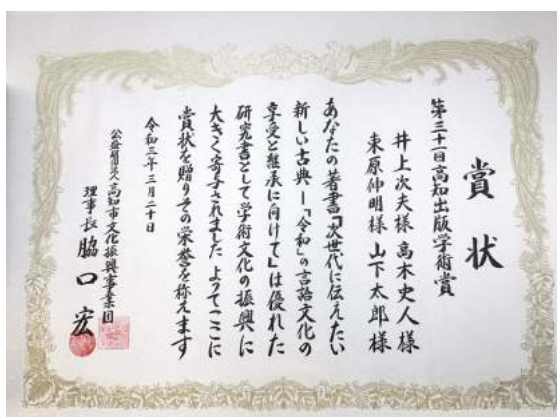 賞状
第三十一回高知出版学術賞
井上次夫様 高木史人様
東原伸明様 山下太郎様
あなたの著書「次世代に伝えたい
新しい古典ー「令和」の言語文化の
享受と継承に向けて」は優れた
研究書として学術文化の振興に
大きく寄与されました よってここに
賞状を贈りその栄誉を称えます
令和三年三月二十日
公益財団法人高知市文化振興事業団
理事長 脇口 宏